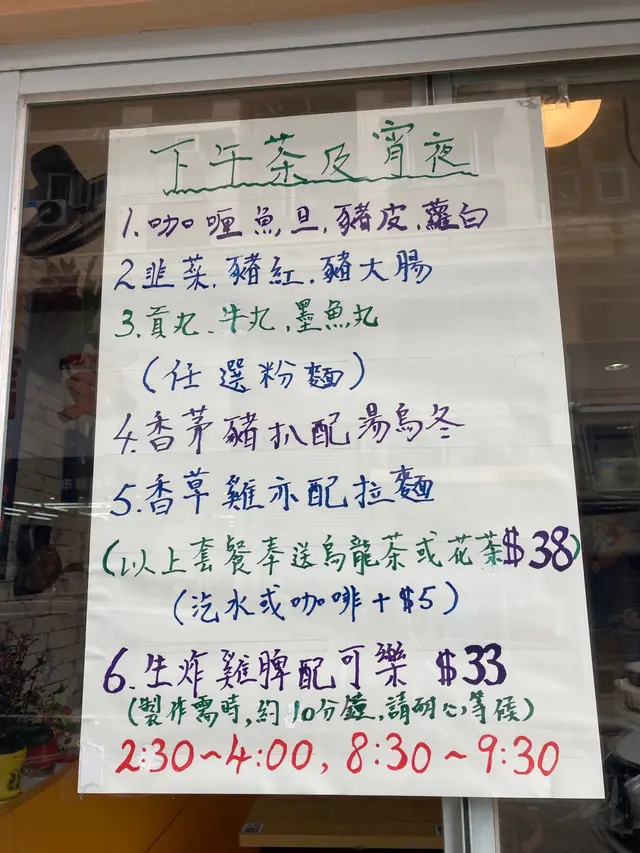 下午茶及宵夜
1.咖喱魚旦,豬皮,蘿白
2韮菜.豬紅.豬大腸
3.貢丸.牛丸,墨魚丸
(任選粉麵)
4.香茅豬扒配湯烏冬
5.香草雞亦配拉麵
(以上套餐奉送烏龍茶或花茶$38)
(汽水或咖啡+$5)
6.生炸雞脾配可樂 $33
(製作需時,約10分鐘,請耐心等候)
2:30~4:00, 8:30~9:30